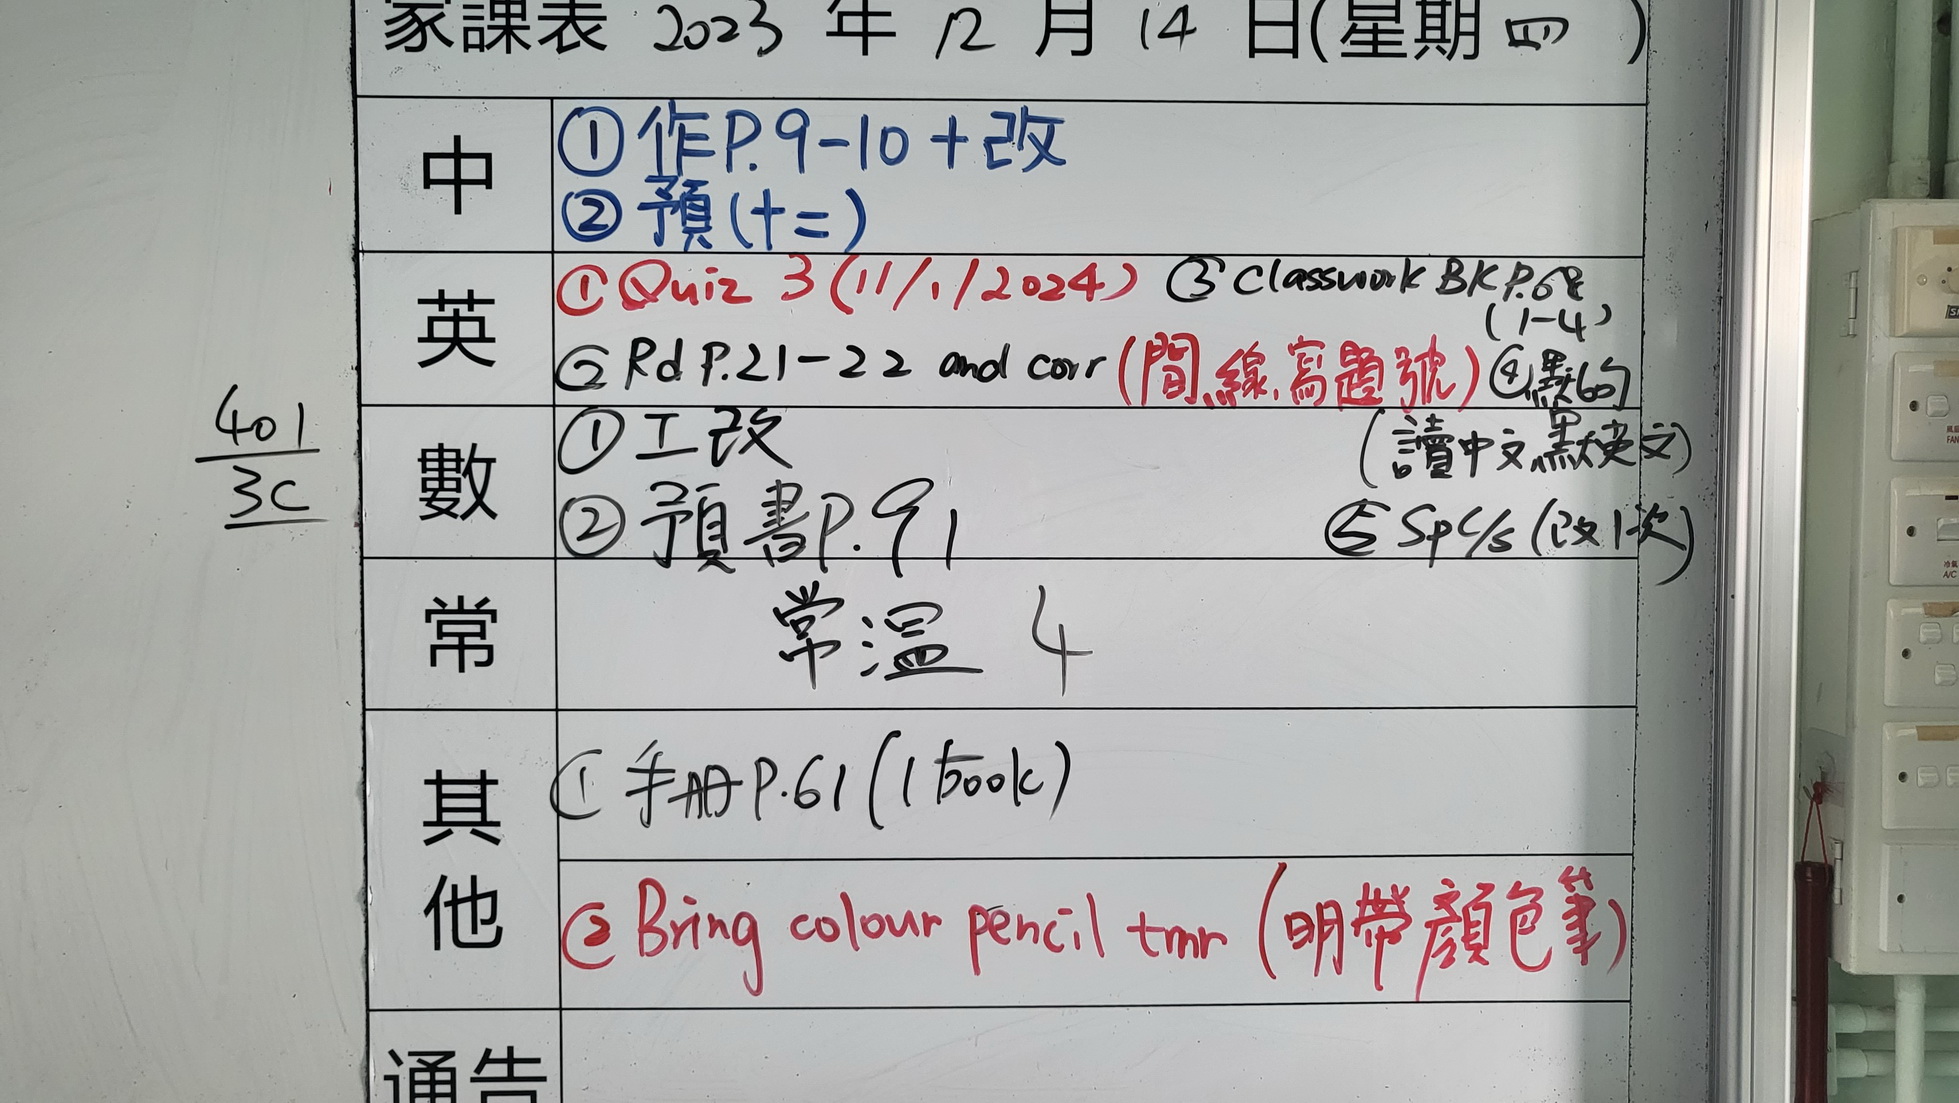 家課表 2023 年 12 月 14 日(星期四)
中
①作P.9-10+改
②預(十二)
英
①Quiz 3(11/1/2024) ③Classwork BK P.68
(1-4)
②Rd P.21-22 and corr(間線,寫題號) ④默6句
(讀中文,默英文)
⑤Sp C/s(改1次)
數
①工改
②預書P.91
401
3C
常
常溫 4
其他
①手冊P.61(1 book)
②Bring colour pencil tmr(明帶顏色筆)
通告